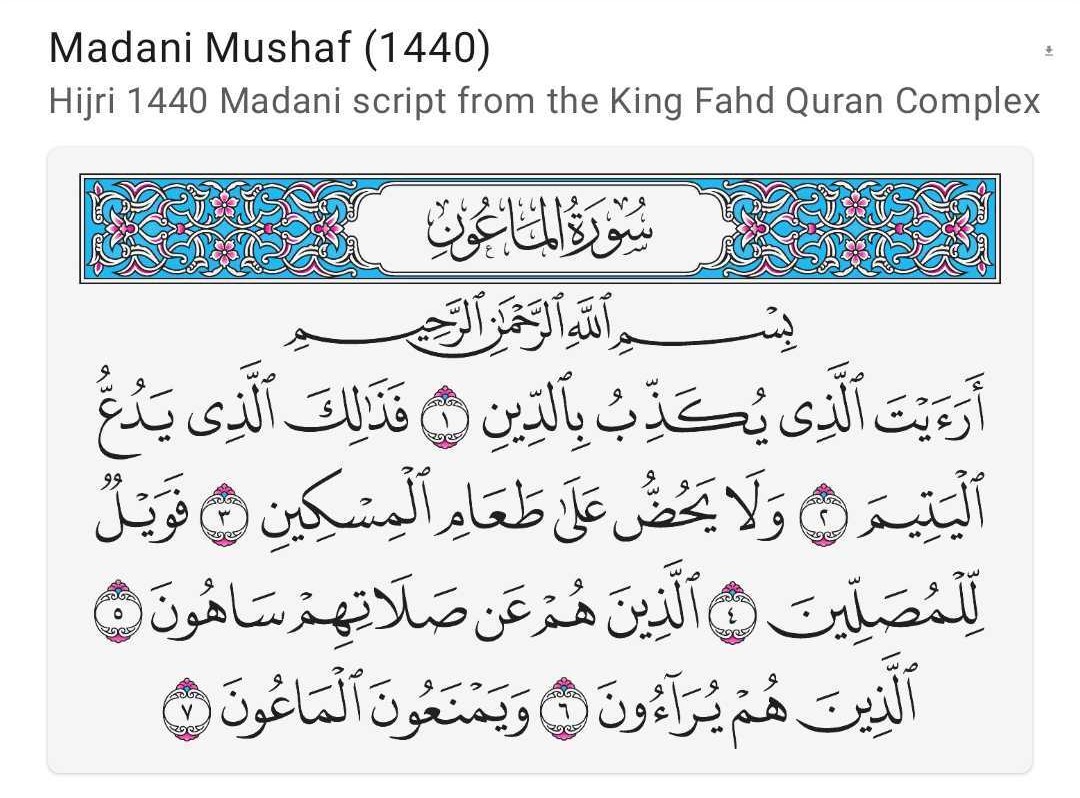 Madani Mushaf (1440)
Hijri 1440 Madani script from the King Fahd Quran Complex
سُورَةُ المَاعُونِ
بِسۡمِ ٱللَّهِ ٱلرَّحۡمَٰنِ ٱلرَّحِيمِ
أَرَءَيۡتَ ٱلَّذِي يُكَذِّبُ بِٱلدِّينِ ١ فَذَٰلِكَ ٱلَّذِي يَدُعُّ
ٱلۡيَتِيمَ ٢ وَلَا يَحُضُّ عَلَىٰ طَعَامِ ٱلۡمِسۡكِينِ ٣ فَوَيۡلٞ
لِّلۡمُصَلِّينَ ٤ ٱلَّذِينَ هُمۡ عَن صَلَاتِهِمۡ سَاهُونَ ٥
ٱلَّذِينَ هُمۡ يُرَآءُونَ ٦ وَيَمۡنَعُونَ ٱلۡمَاعُونَ ٧